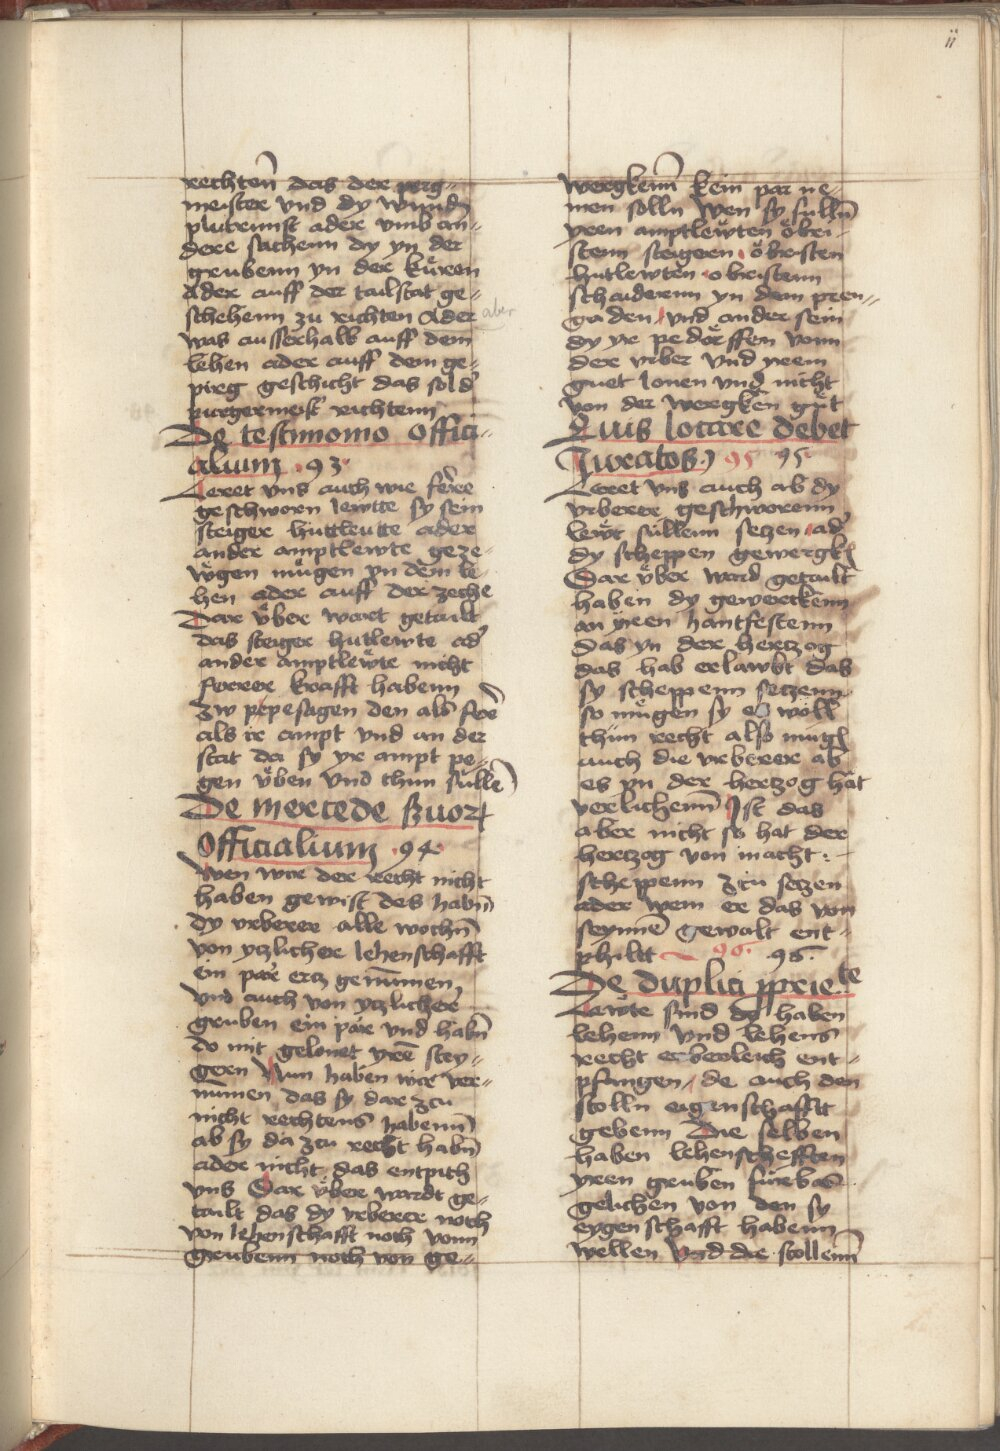 ii
rechten̄ das der perg-
meister vnd dy wundn̄
plutrunst ader vmb an-
dere sachenn dy yn der
grubenn yn der kuͤren
Ader auff der tailstat ge-
schehenn zu richten Ader aber
was ausserhalb auff dem
lehen ader auff dem ge-
pirg geschicht das sol d'
purgermeist' richtenn
De testimonio offici-
alium .93.
Leret vns auch wie ferre
geschworn lewtte sy sein
steiger huttleutte ader
ander amptlewte geze-
wgen mugen yn dem le-
hen ader auff der zeche
Dar vber wart getailt
das steiger hutlewte ad'
ander amptlewte nicht
ferrer krafft habenn
zw pepesagen den als ferē
als ir ampt vnd an der
stat da sy yr ampt pe-
gen vben vnd thun sullē
De mercede suorʒ
officialium .94.
Wen wir der recht nicht
haben gewist des habn̄
dy vrberer alle wochn̄
von yczlicher lehenschafft
ein par ercz genūmen,
vnd auch von yczlicher
gruben ein par vnd habn̄
do mit gelonet yrē stey-
gern Nun haben wir ver-
nūmen das sy dar zcu
nicht rechtens habenn̄
ab sy da zcu recht habn̄
ader nicht das entpith
vns Dar vber wardt ge-
tailt das dy vrberer noch
von lehenschafft noch vonn
grubenn noch von ge-
wergkenn̄ kein par ne-
men solln Wen sy sulln̄
yren amptlewten obri-
stenn steigern obristen
hutlewten obristenn
schaiderenn yn dem pren-
gaden vnd ander sein
dy yr pedorffen vonn
der vrber vnd yrem
guet lonen vnd nicht
von der wergken gut
Quis locare debet
Iuratos 95 95
Leret vns auch ab dy
vrberer geschworenn
lewt sullenn seczen ad'
dy scheppen gewergkn̄
Dar vber ward getailt
haben dy gewerckenn
an yren hantfestenn
das yn der herczog
das hab erlawbt das
sy scheppenn seczenn
so mugen sy es woll
thun recht also mugn̄
auch die vrberer ab
es yn der herczog hat
verlichenn̄ Ist das
aber nicht so hat der
herczog von macht
scheppenn zcu seczen
ader wem er das von
seynnē gewalt ent-
philt 96. 96.
De duplici pprieᵗᵉ
Lewte sind dy haben
lehenn vnd lehens
recht erberleich ent-
pfangen de auch den
stolln eigenschafft
gebenn Die selben
haben lehenschefften
yren gruben furbas
gelichen von den sy
eygenschafft habenn
wellen vnd die stollenn̄